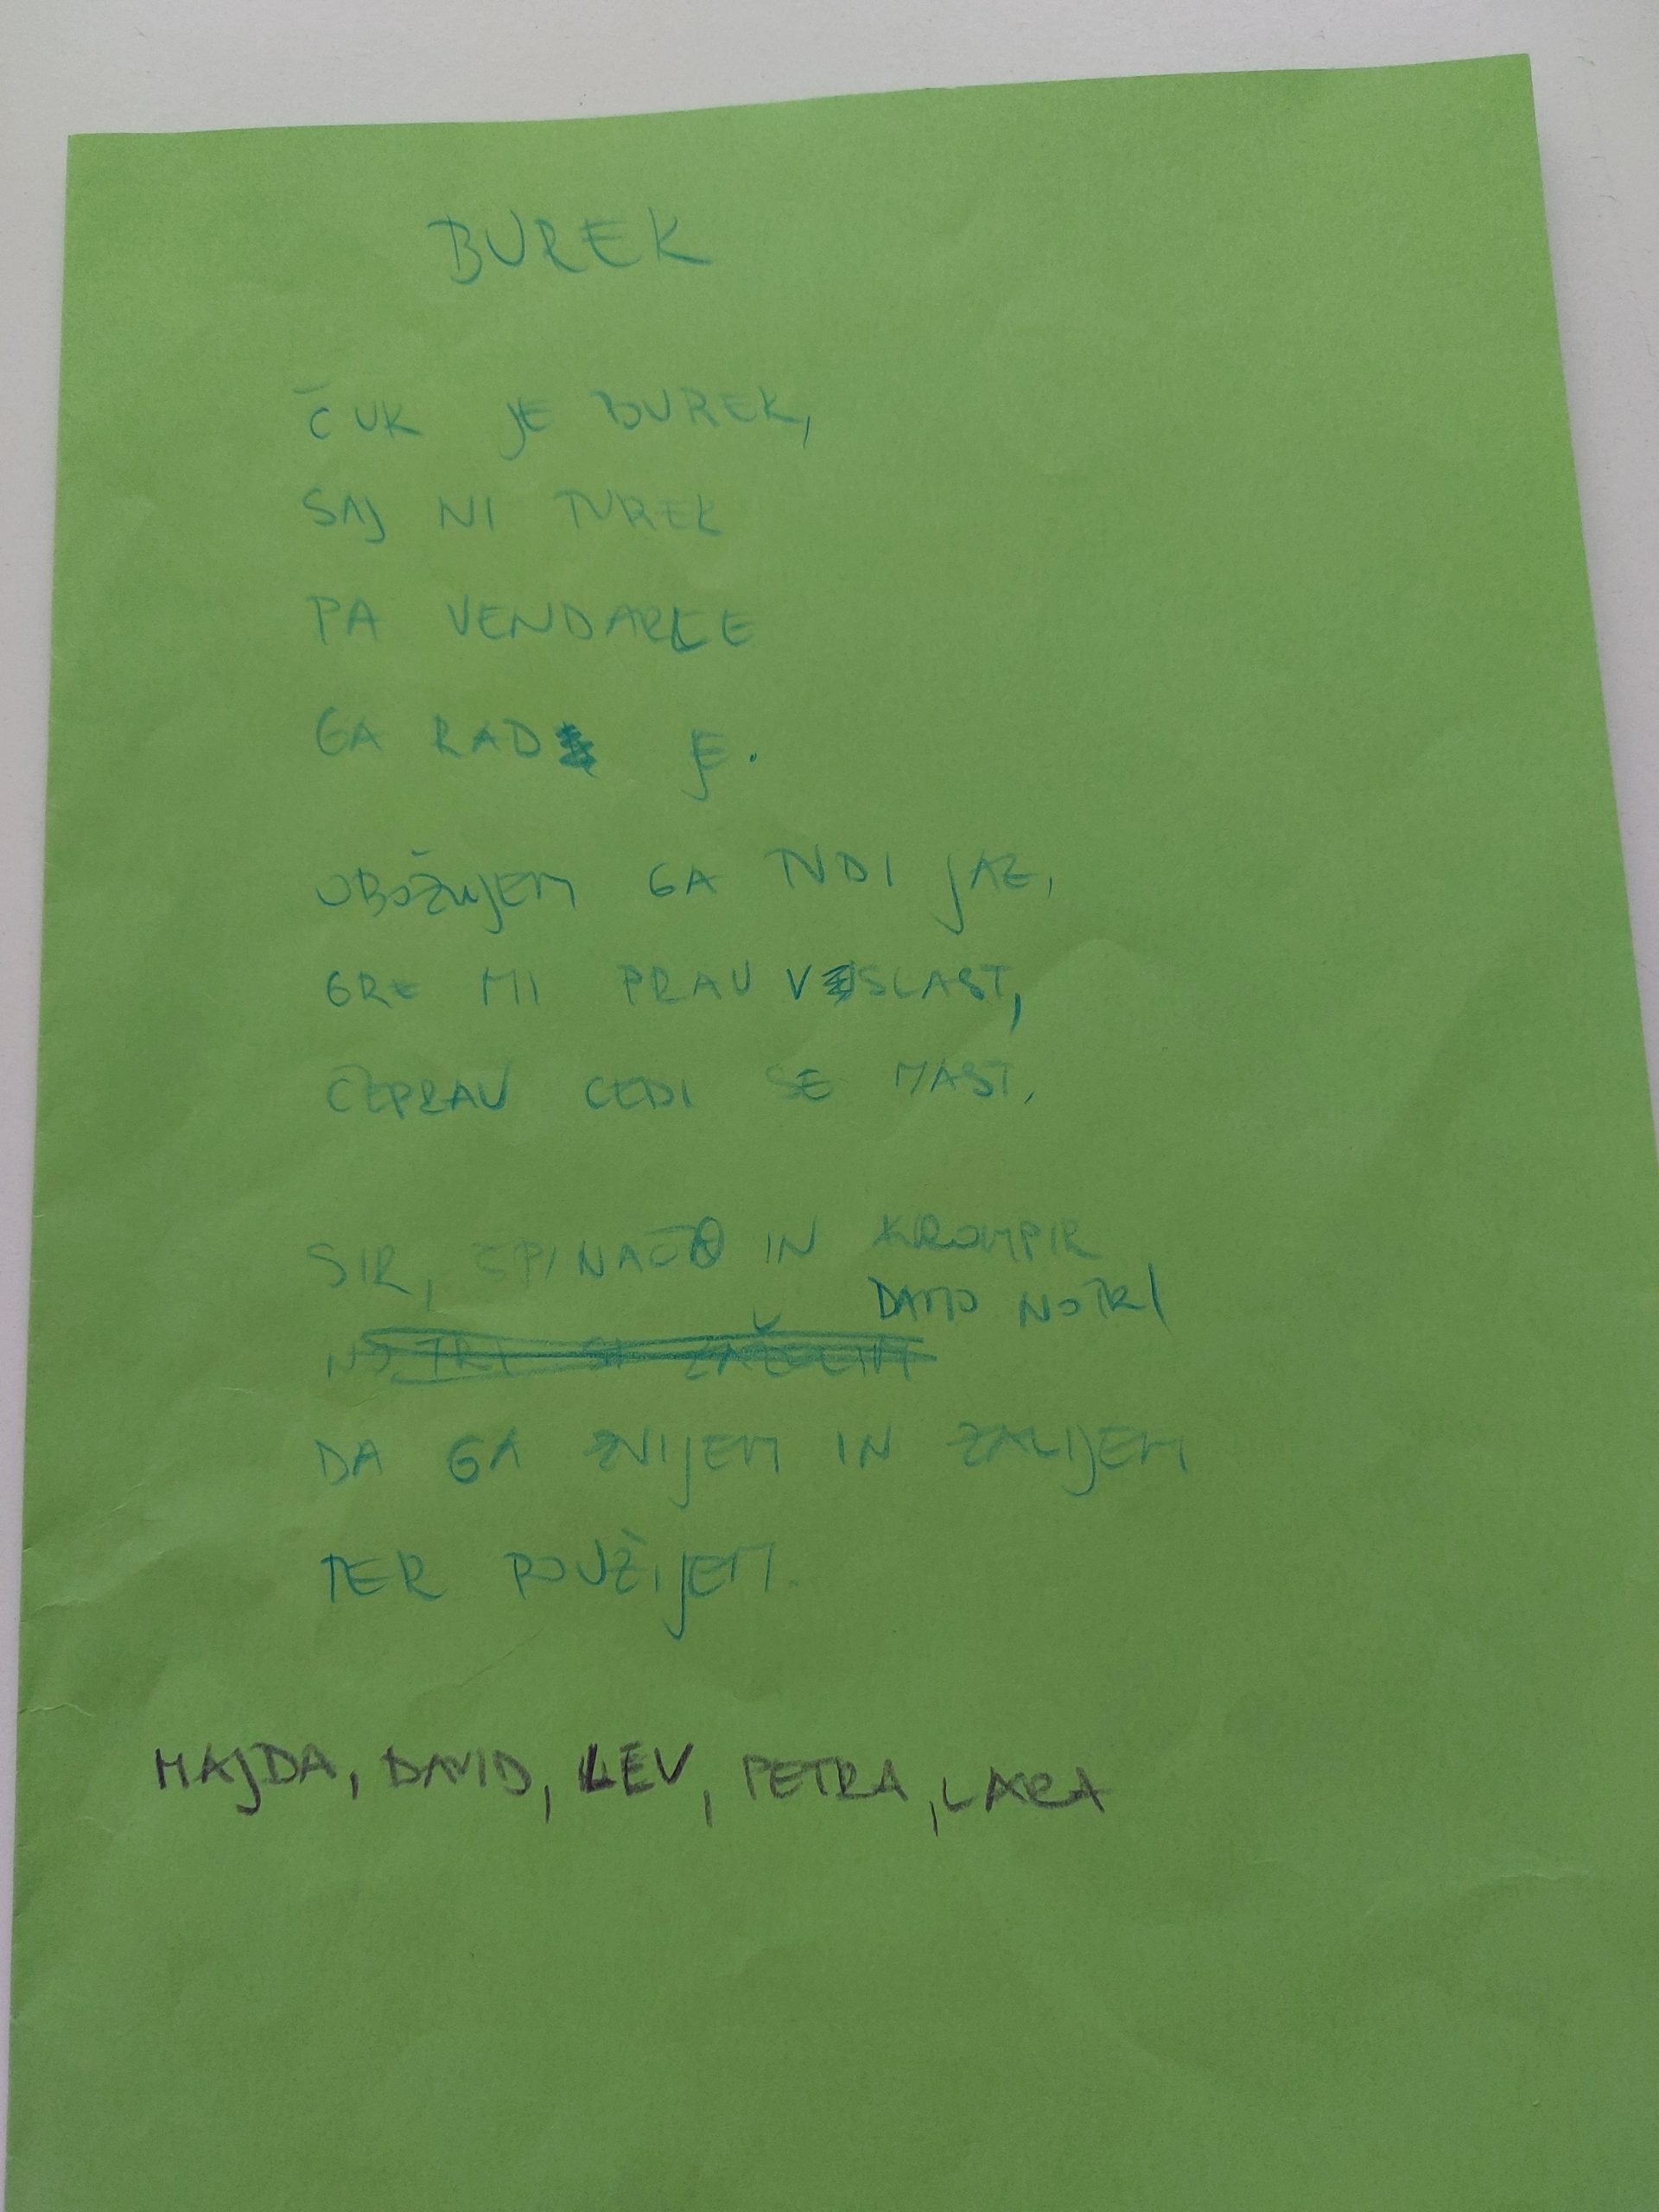 BUREK
ČUK JE BUREK,
SAJ NI TUREK
PA VENDARLE
GA RAD JE.
OBOŽUJEM GA TUDI JAZ,
GRE MI PRAV V SLAST,
ČEPRAV CEDI SE MAST.
SIR, ŠPINAČO IN KROMPIR
DAMO NOTRI
DA GA ZVIJEM IN ZALIJEM
TER POUŽIJEM.
MAJDA, DAVID, LEV, PETRA, LARA